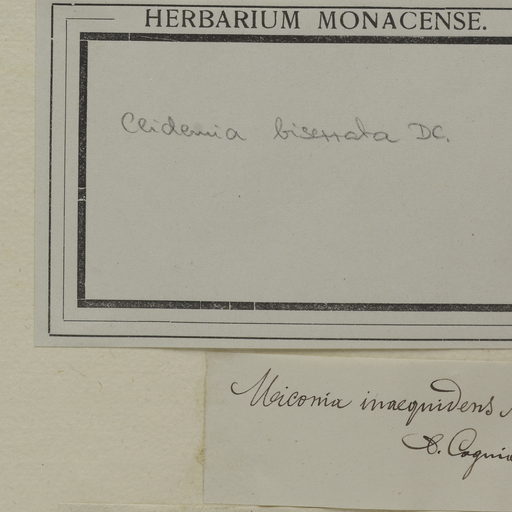 HERBARIUM MONACENSE.
Clidemia biserrata DC.
Miconia inaequidens
C. Cognia